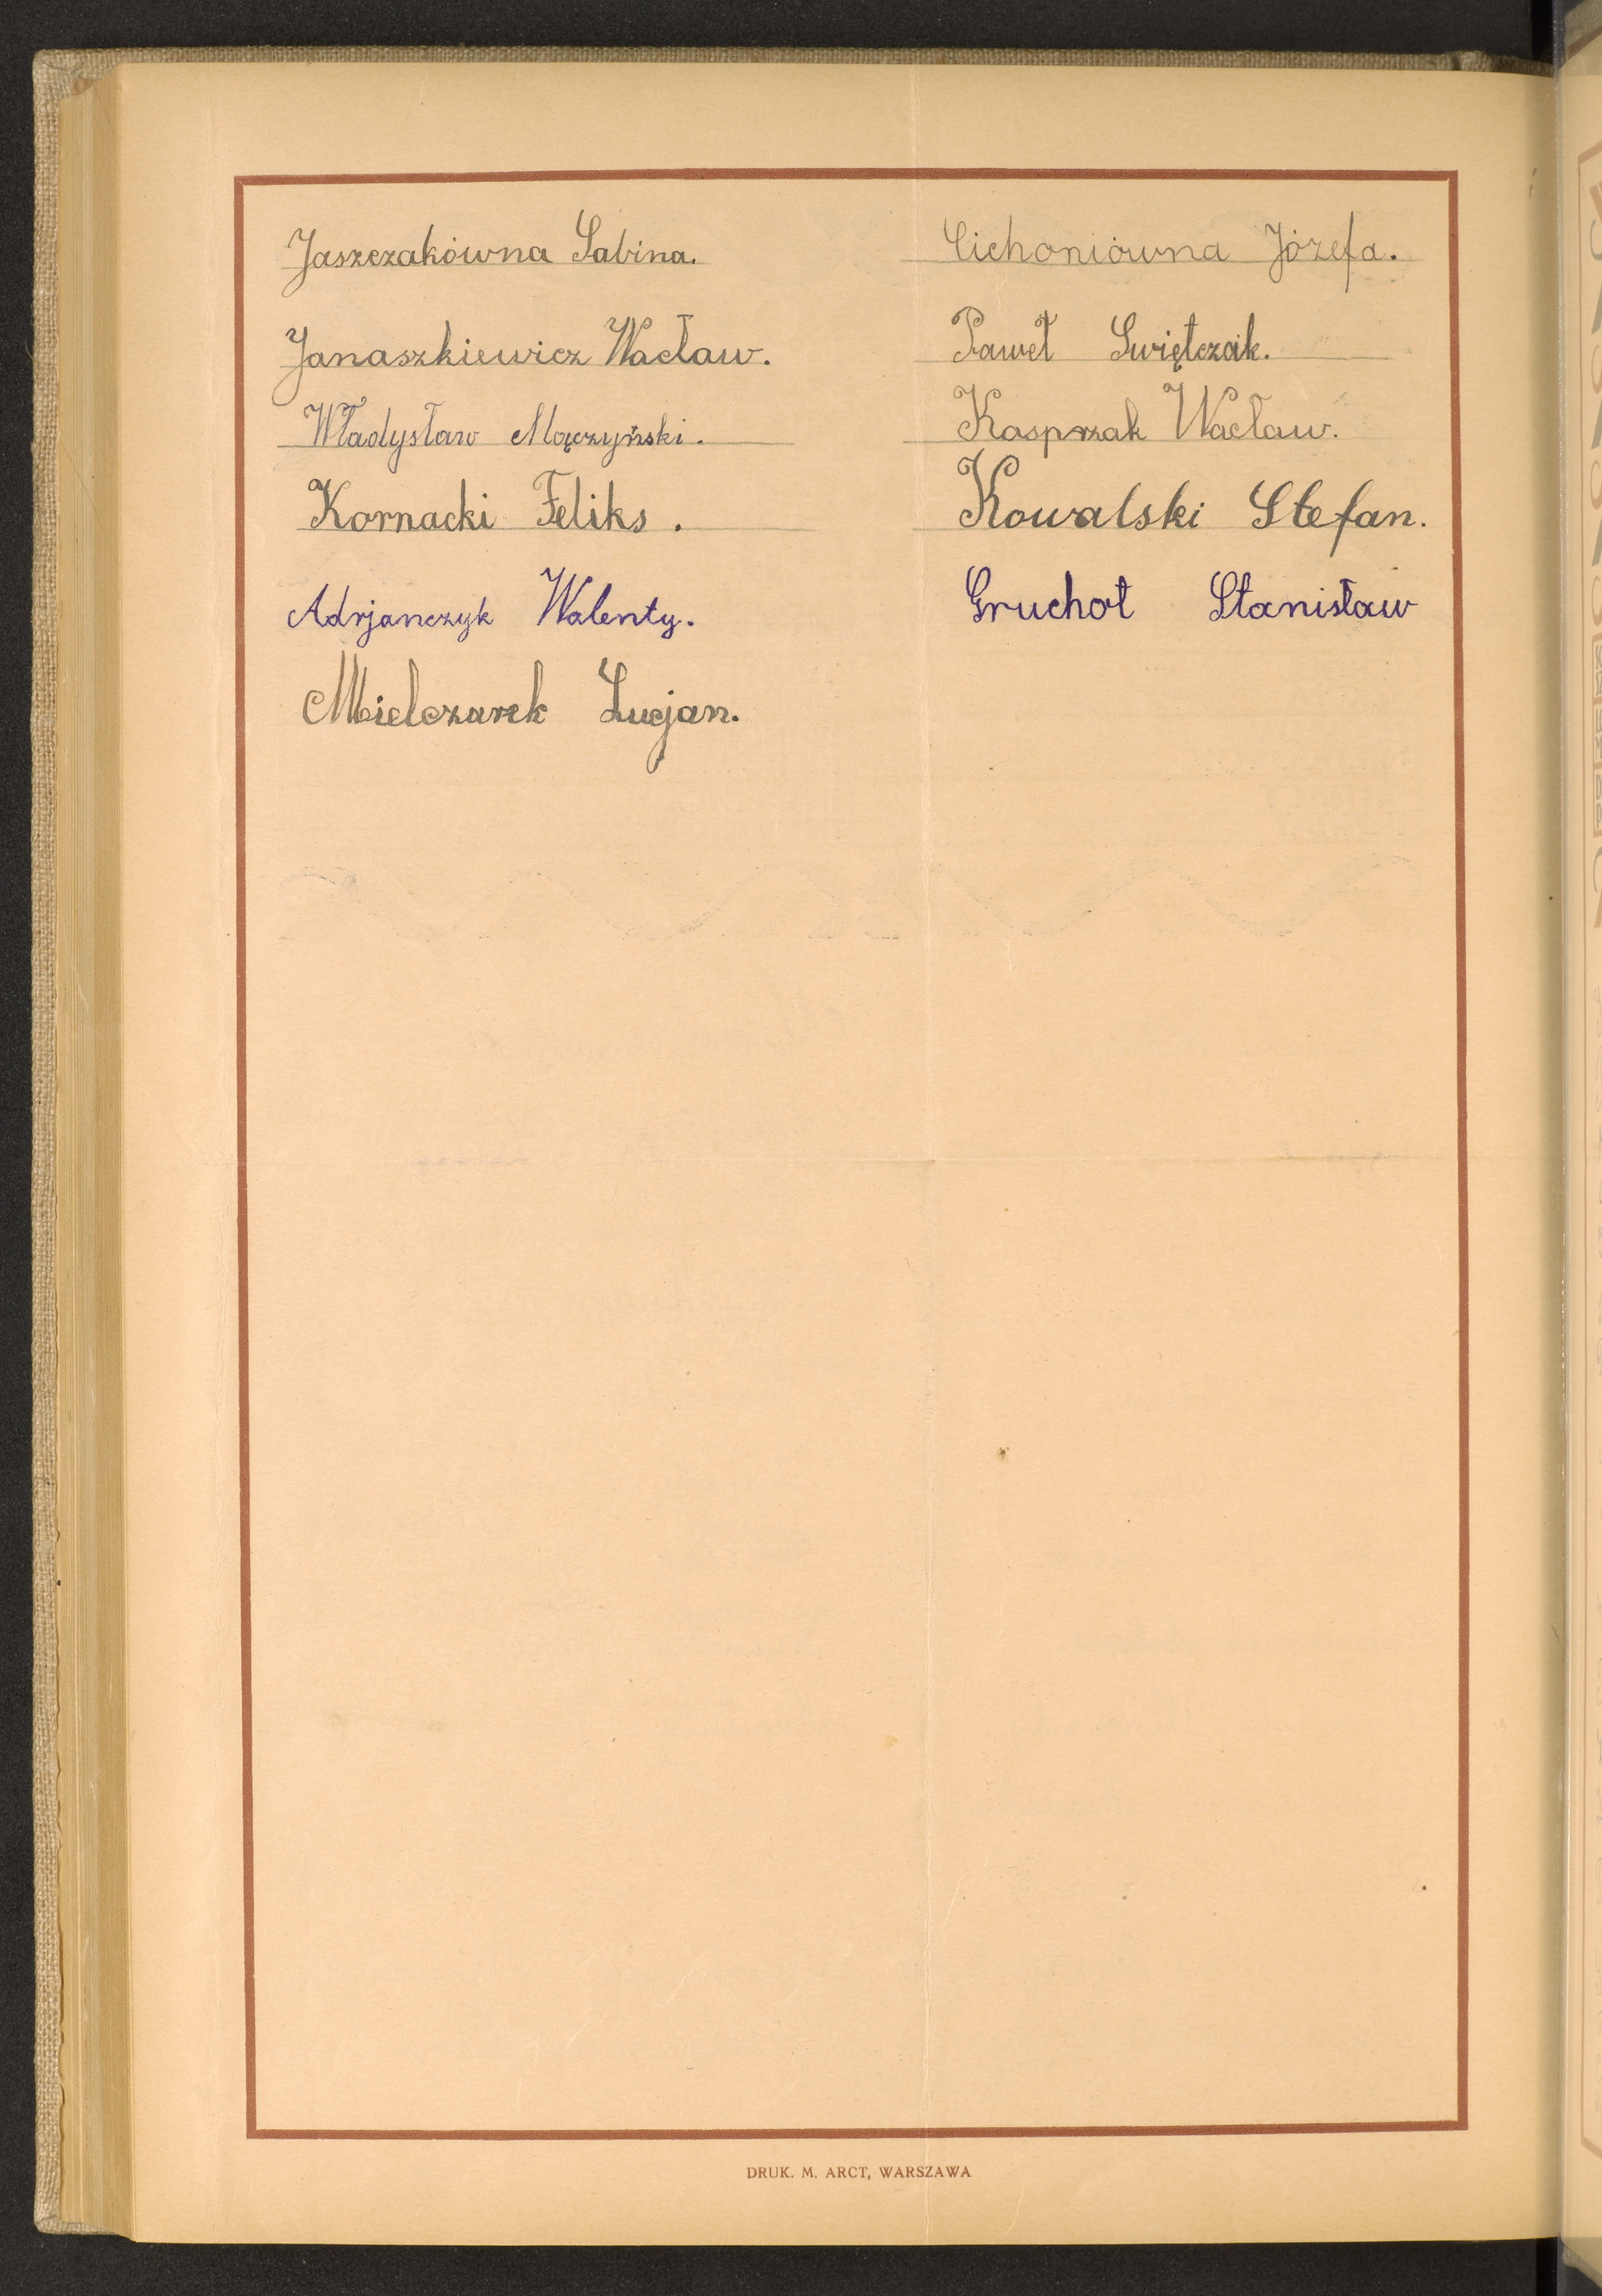 Jaszczakówna Sabina.
Janaszkiewicz Wacław.
Władysław Mączyński.
Kornacki Feliks.
Adrjanczyk Walenty.
Mielczarek Lucjan.
Cichoniówna Józefa.
Paweł Swiętczak.
Kasprzak Wacław.
Kowalski Stefan.
Gruchot Stanisław
DRUK. M. ARCT, WARSZAWA